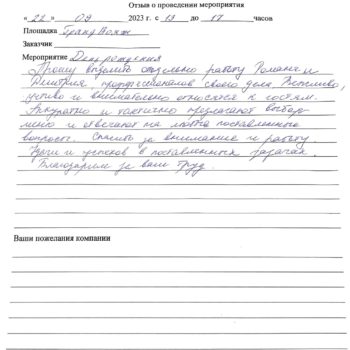 Отзыв о проведении мероприятия
«22» 09 2023 г. с 13 до 17 часов
Площадка Гранд Вояж
Заказчик
Мероприятие День рождения
Прошу выделить отдельно работу Романа и
Дмитрия, профессионалов своего дела. Вежливо,
учтиво и внимательно относятся к гостям.
Аккуратно и тактично предлагают выбор
меню и отвечают на любые поставленные
вопросы. Спасибо за внимание и работу.
Удачи и успехов в поставленных задачах.
Благодарим за ваш труд.
Ваши пожелания компании